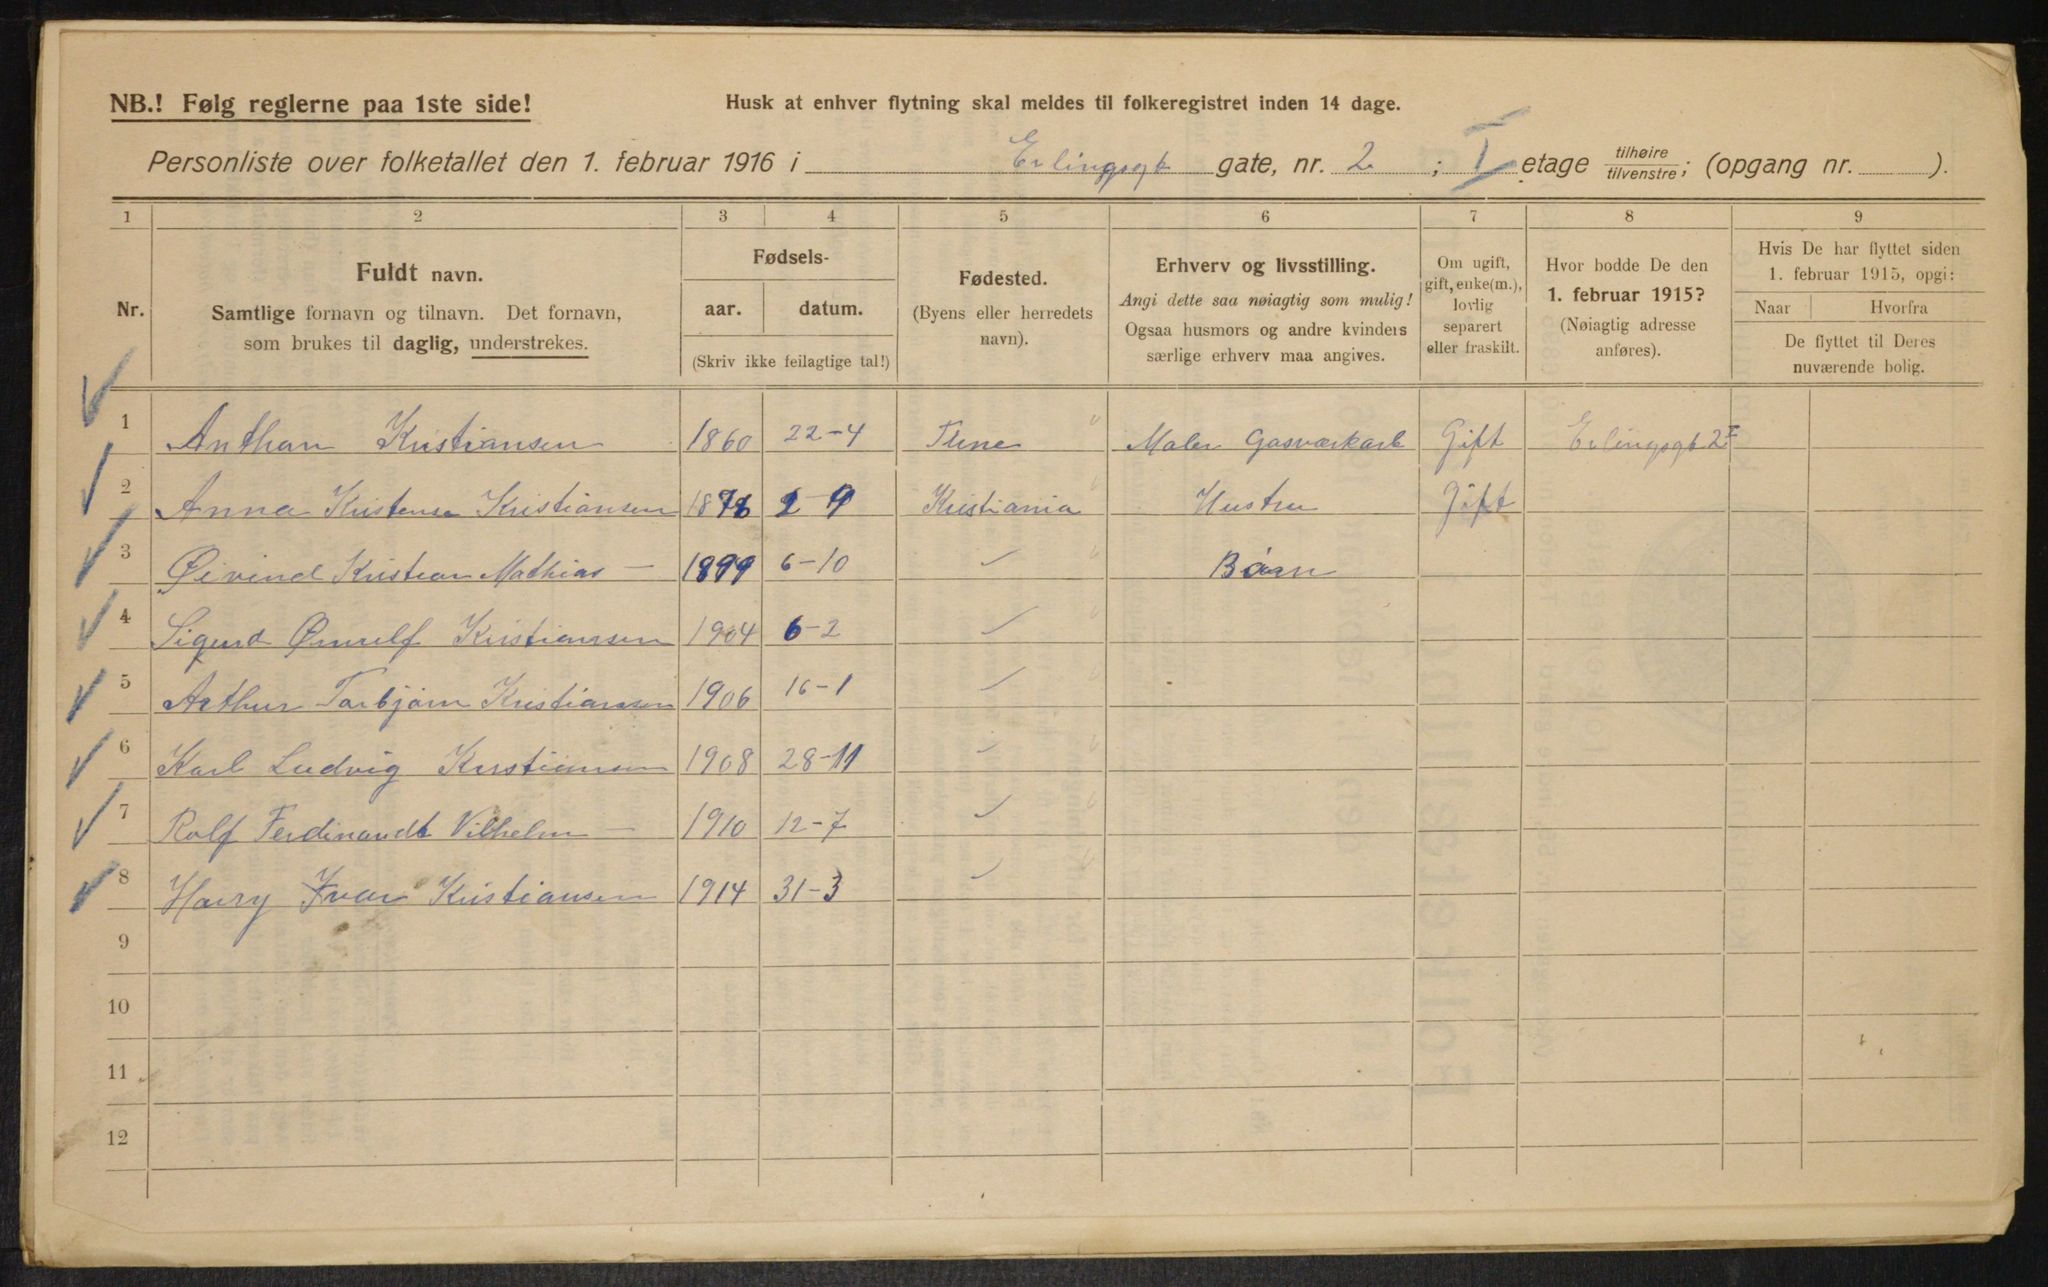 NB.! Følg reglerne paa 1ste side! Husk at enhver flytning skal meldes til folkeregistret inden 14 dage.
Personliste over folketallet den 1. februar 1916 i Erlingsgt gate, nr. 2 ; I etage tilhøire/tilvenstre; (opgang nr. ).
1 2 3 4 5 6 7 8 9
Nr.
Fuldt navn.
Samtlige fornavn og tilnavn. Det fornavn,
som brukes til daglig, understrekes.
Fødsels-
aar. datum.
(Skriv ikke feilagtige tal!)
Fødested.
(Byens eller herredets
navn).
Erhverv og livsstilling.
Angi dette saa nøiagtig som mulig!
Ogsaa husmors og andre kvinders
særlige erhverv maa angives.
Om ugift,
gift, enke(m.),
lovlig
separert
eller fraskilt.
Hvor bodde De den
1. februar 1915?
(Nøiagtig adresse
anføres).
Hvis De har flyttet siden
1. februar 1915, opgi:
Naar Hvorfra
De flyttet til Deres
nuværende bolig.
1 Anthon Kristiansen 1860 22-4 Tune Maler Gasværkarb Gift Erlingsgt 2 I
2 Anna Kristense Kristiansen 1878 2-9 Kristiania Hustru Gift
3 Øivind Kristian Mathias — 1899 6-10 Barn
4 Sigurd Ørnulf Kristiansen 1904 6-2
5 Arthur Torbjørn Kristiansen 1906 16-1
6 Karl Ludvig Kristiansen 1908 28-11
7 Rolf Ferdinandt Vilhelm — 1910 12-7
8 Harry Ivar Kristiansen 1914 31-3
9
10
11
12